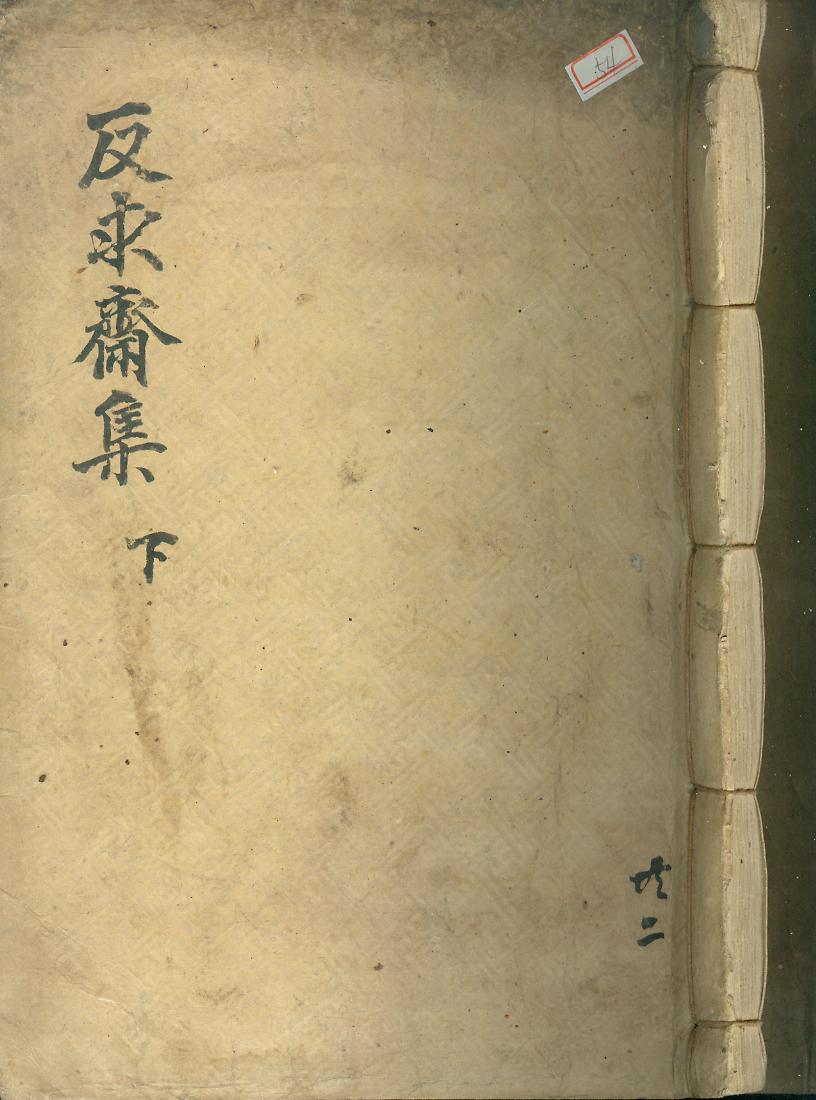 反求齋集
下
共二
54